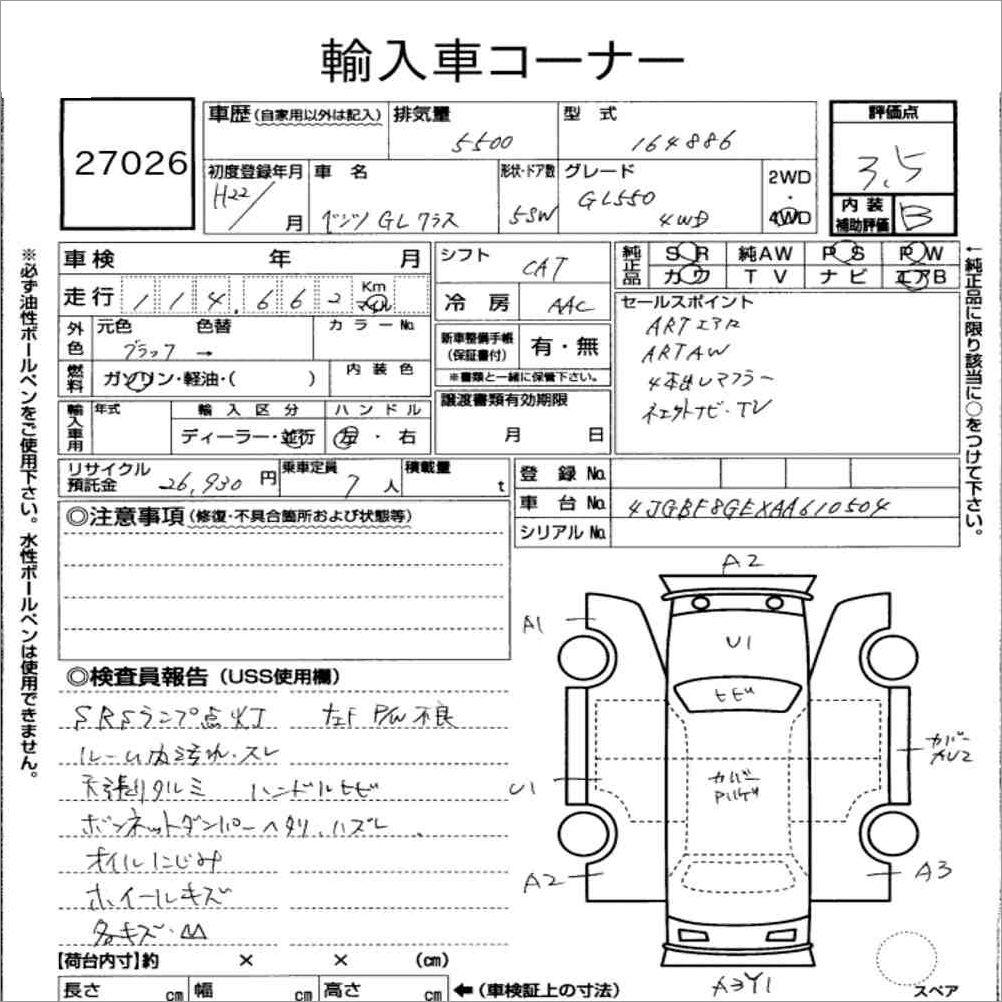 輸入車コーナー
27026
車歴(自家用以外は記入) 排気量 5500 型式 164886
評価点 3.5
初度登録年月 H22/ 月 車名 ベンツ GLクラス 形状・ドア数 5SW グレード GL550 4WD 2WD・4WD
内装補助評価 B
車検 年 月
シフト CAT
純正品 SR 純AW PS PW
カワ TV ナビ エアB
走行 114,662 Km マイル
冷房 AAC
セールスポイント
ARTエアロ
ARTAW
4本出しマフラー
社外ナビ・TV
外色 元色 ブラック → 色替 カラーNo.
新車整備手帳(保証書付) 有・無
※書類と一緒に保管下さい。
燃料 ガソリン・軽油・( ) 内装色
輸入車用 年式 輸入区分 ディーラー・並行 ハンドル 左・右
譲渡書類有効期限 月 日
リサイクル預託金 26,930円 乗車定員 7人 積載量 t
登録No.
車台No. 4JGBF8GEXAA610504
シリアルNo.
◎注意事項(修復・不具合箇所および状態等)
◎検査員報告(USS使用欄)
SRSランプ点灯 左F P/W不良
ルーム内汚れ・スレ
天張りタルミ ハンドルヒビ
ボンネットダンパーヘタリ、ハズレ
オイルにじみ
ホイールキズ
各キズ・凹
【荷台内寸】約 × × (cm)
長さ cm 幅 cm 高さ cm ←(車検証上の寸法)
※必ず油性ボールペンをご使用下さい。水性ボールペンは使用できません。
←純正品に限り該当に○をつけて下さい。
A2
A1
U1
ヒビ
カバー
U1
カバー
A2
A3
A3Y1
スペア